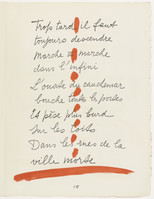 Trop tard il faut
toujours descendre
Marche à marche
dans l'infini
L'ouate du cauchemar
bouche toutes les portes
Et pèse plus lourd
Sur les toits
Dans les rues de la
ville morte